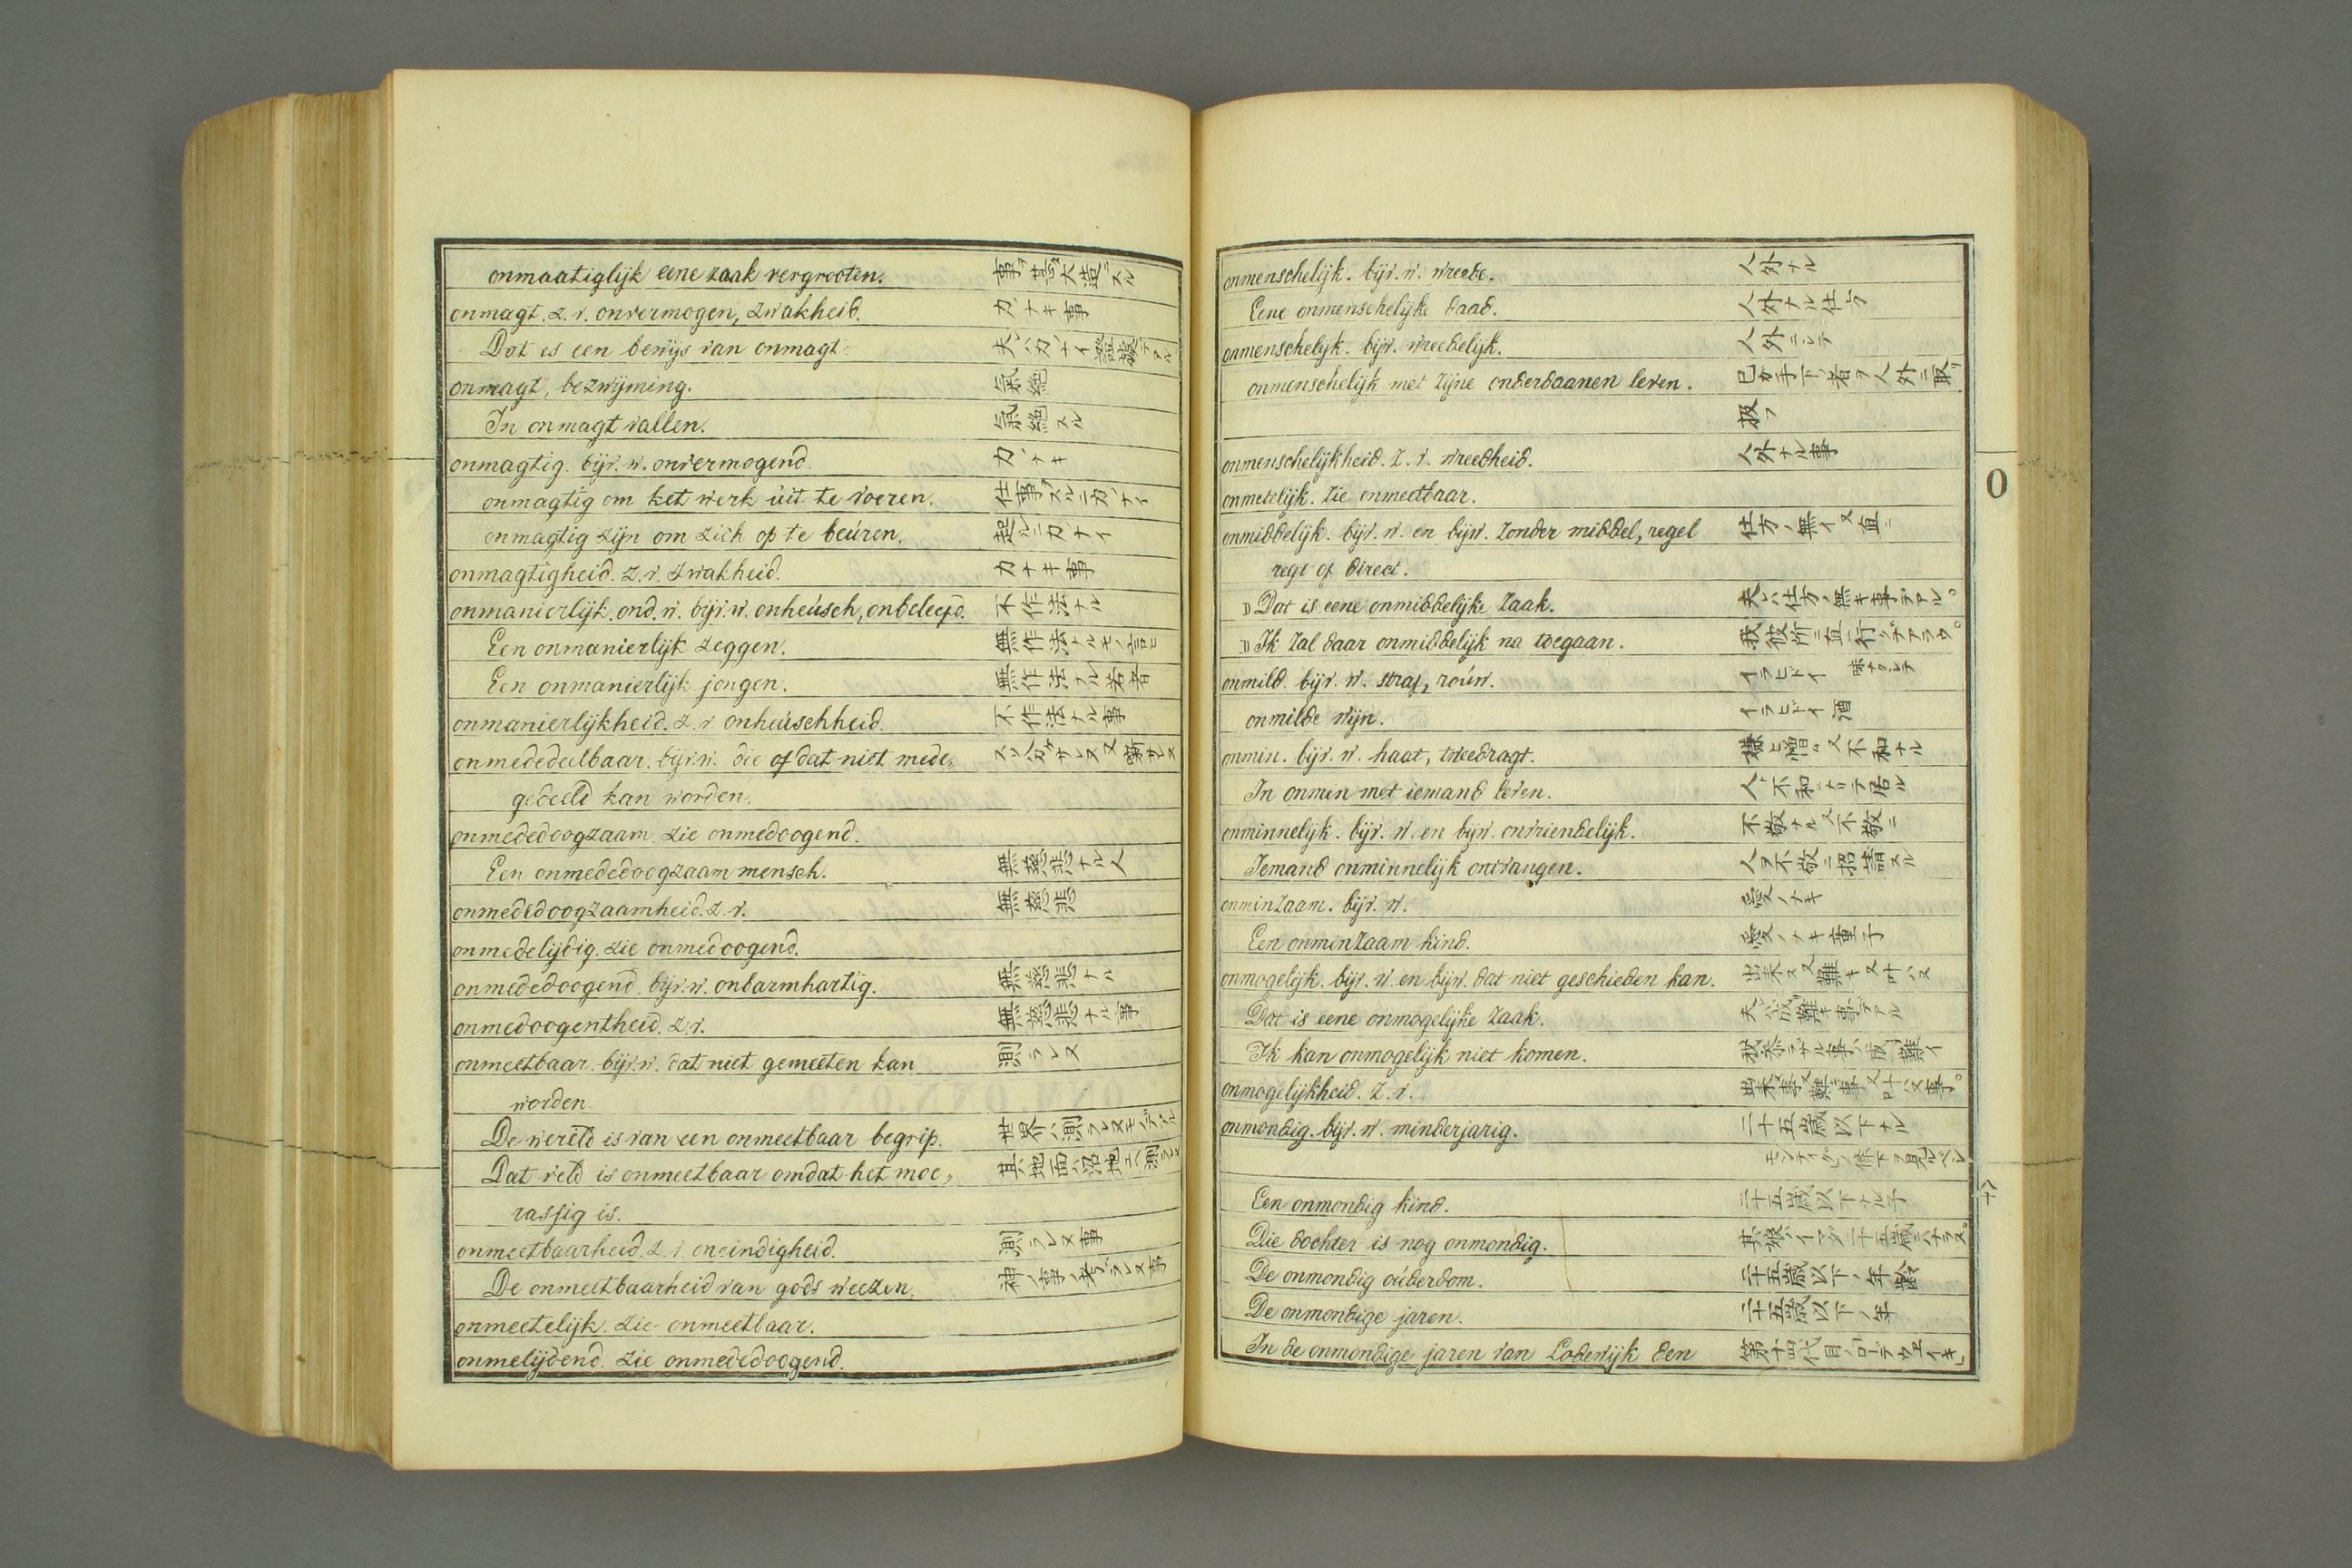 onmaatiglijk eene zaak vergrooten. 事ヲ甚ダ大造ニスル
onmagt. z. v. onvermogen, zwakheid. 力ノナキ事
Dat is een bewijs van onmagt. 夫レハ力ノナイ證據デアル
onmagt, bezwijming. 氣絶
In onmagt vallen. 氣絶スル
onmagtig. bijv. w. onvermogend. 力ノナキ
onmagtig om ket werk uit te voeren. 仕事ヲスルニ力ノナイ
onmagtig zijn om zich op te beuren. 起ルニ力ノナイ
onmagtigheid. z. v. zwakheid. 力ナキ事
onmanierlijk. ond. w. bijv. w. onheusch, onbeleefd. 不作法ナル
Een onmanierlijk zeggen. 無作法ナルモノ言ヒ
Een onmanierlijk jongen. 無作法ナル若者
onmanierlijkheid. z. v. onheuschheid. 不作法ナル事
onmededeelbaar. bijv. w. die of dat niet mede„
gedeeld kan worden.
onmededoogzaam. zie onmedoogend.
Een onmededoogzaam mensch. 無慈悲ナル人
onmededoogzaamheid. z. v. 無慈悲
onmedelijdig. zie onmedoogend.
onmededoogend. bijv. w. onbarmhartig. 無慈悲ナル
onmedoogentheid. z. v. 無慈悲ナル事
onmeetbaar. bijv. w. dat niet gemeeten kan 測ラレヌ
worden.
De wereld is van een onmeetbaar begrip. 世界ハ測ラレヌモノデアル
Dat veld is onmeetbaar omdat het moe„ 其地面ハ沼地ユヘ測ラレヌ
rassig is.
onmeetbaarheid. z. v. oneindigheid. 測ラレヌ事
De onmeetbaarheid van gods weezen.
onmeetelijk. zie onmeetbaar.
onmelijdend. zie onmededoogend.
onmenschelijk. bijv. w. wreede. 人外ナル
Eene onmenschelijke daad. 人外ナル仕方
onmenschelijk. bijw. wreedelijk. 人外ニシテ
onmenschelijk met zijne onderdaanen leven. 己ガ手下ノ者ヲ人外ニ取リ
扱フ
onmenschelijkheid. z. v. wreedheid. 人外ナル事
onmetelijk. zie onmeetbaar.
onmiddelijk. bijv. w. en bijw. zonder middel, regel 仕方ノ無イ又直ニ
regt of direct.
Dat is eene onmiddelijke zaak. 夫レハ仕方ノ無キ事デアル。
Ik zal daar onmiddelijk na toegaan. 我彼所ニ直ニ行クデアラウ。
onmild. bijv. w. straf, rouw. イラヒドイ
onmilde wijn. イラヒドイ酒
onmin. bijv. w. haat, tweedragt.
In onmin met iemand leven. 人ト不和ニナリテ居ル
onminnelijk. bijv. w. en bijw. onvriendelijk. 不敬ナル又不敬ニ
Iemand onminnelijk ontvangen. 人ヲ不敬ニ招請スル
onminzaam. bijv. w. 愛ノナキ
Een onminzaam kind. 愛ノナキ童子
onmogelijk. bijv. w. en bijw. dat niet geschieden kan. 出来ヌ又難キ又叶ハヌ
Dat is eene onmogelijke zaak. 夫レハ成難キ事デアル
Ik kan onmogelijk niet komen.
onmogelijkheid. z. v. 出来ヌ事又難キ事又叶ハヌ事。
onmondig. bijv. w. minderjarig. 二十五歳以下ナル
Een onmondig kind. 二十五歳以下ナル子
Die dochter is nog onmondig. 其娘ハイマダ二十五歳ニナラヌ。
De onmondig ouderdom. 二十五歳以下ノ年齢
De onmondige jaren. 二十五歳以下ノ年
In de onmondige jaren van Lodewijk den 第十四代目ノロデウエイキ
O